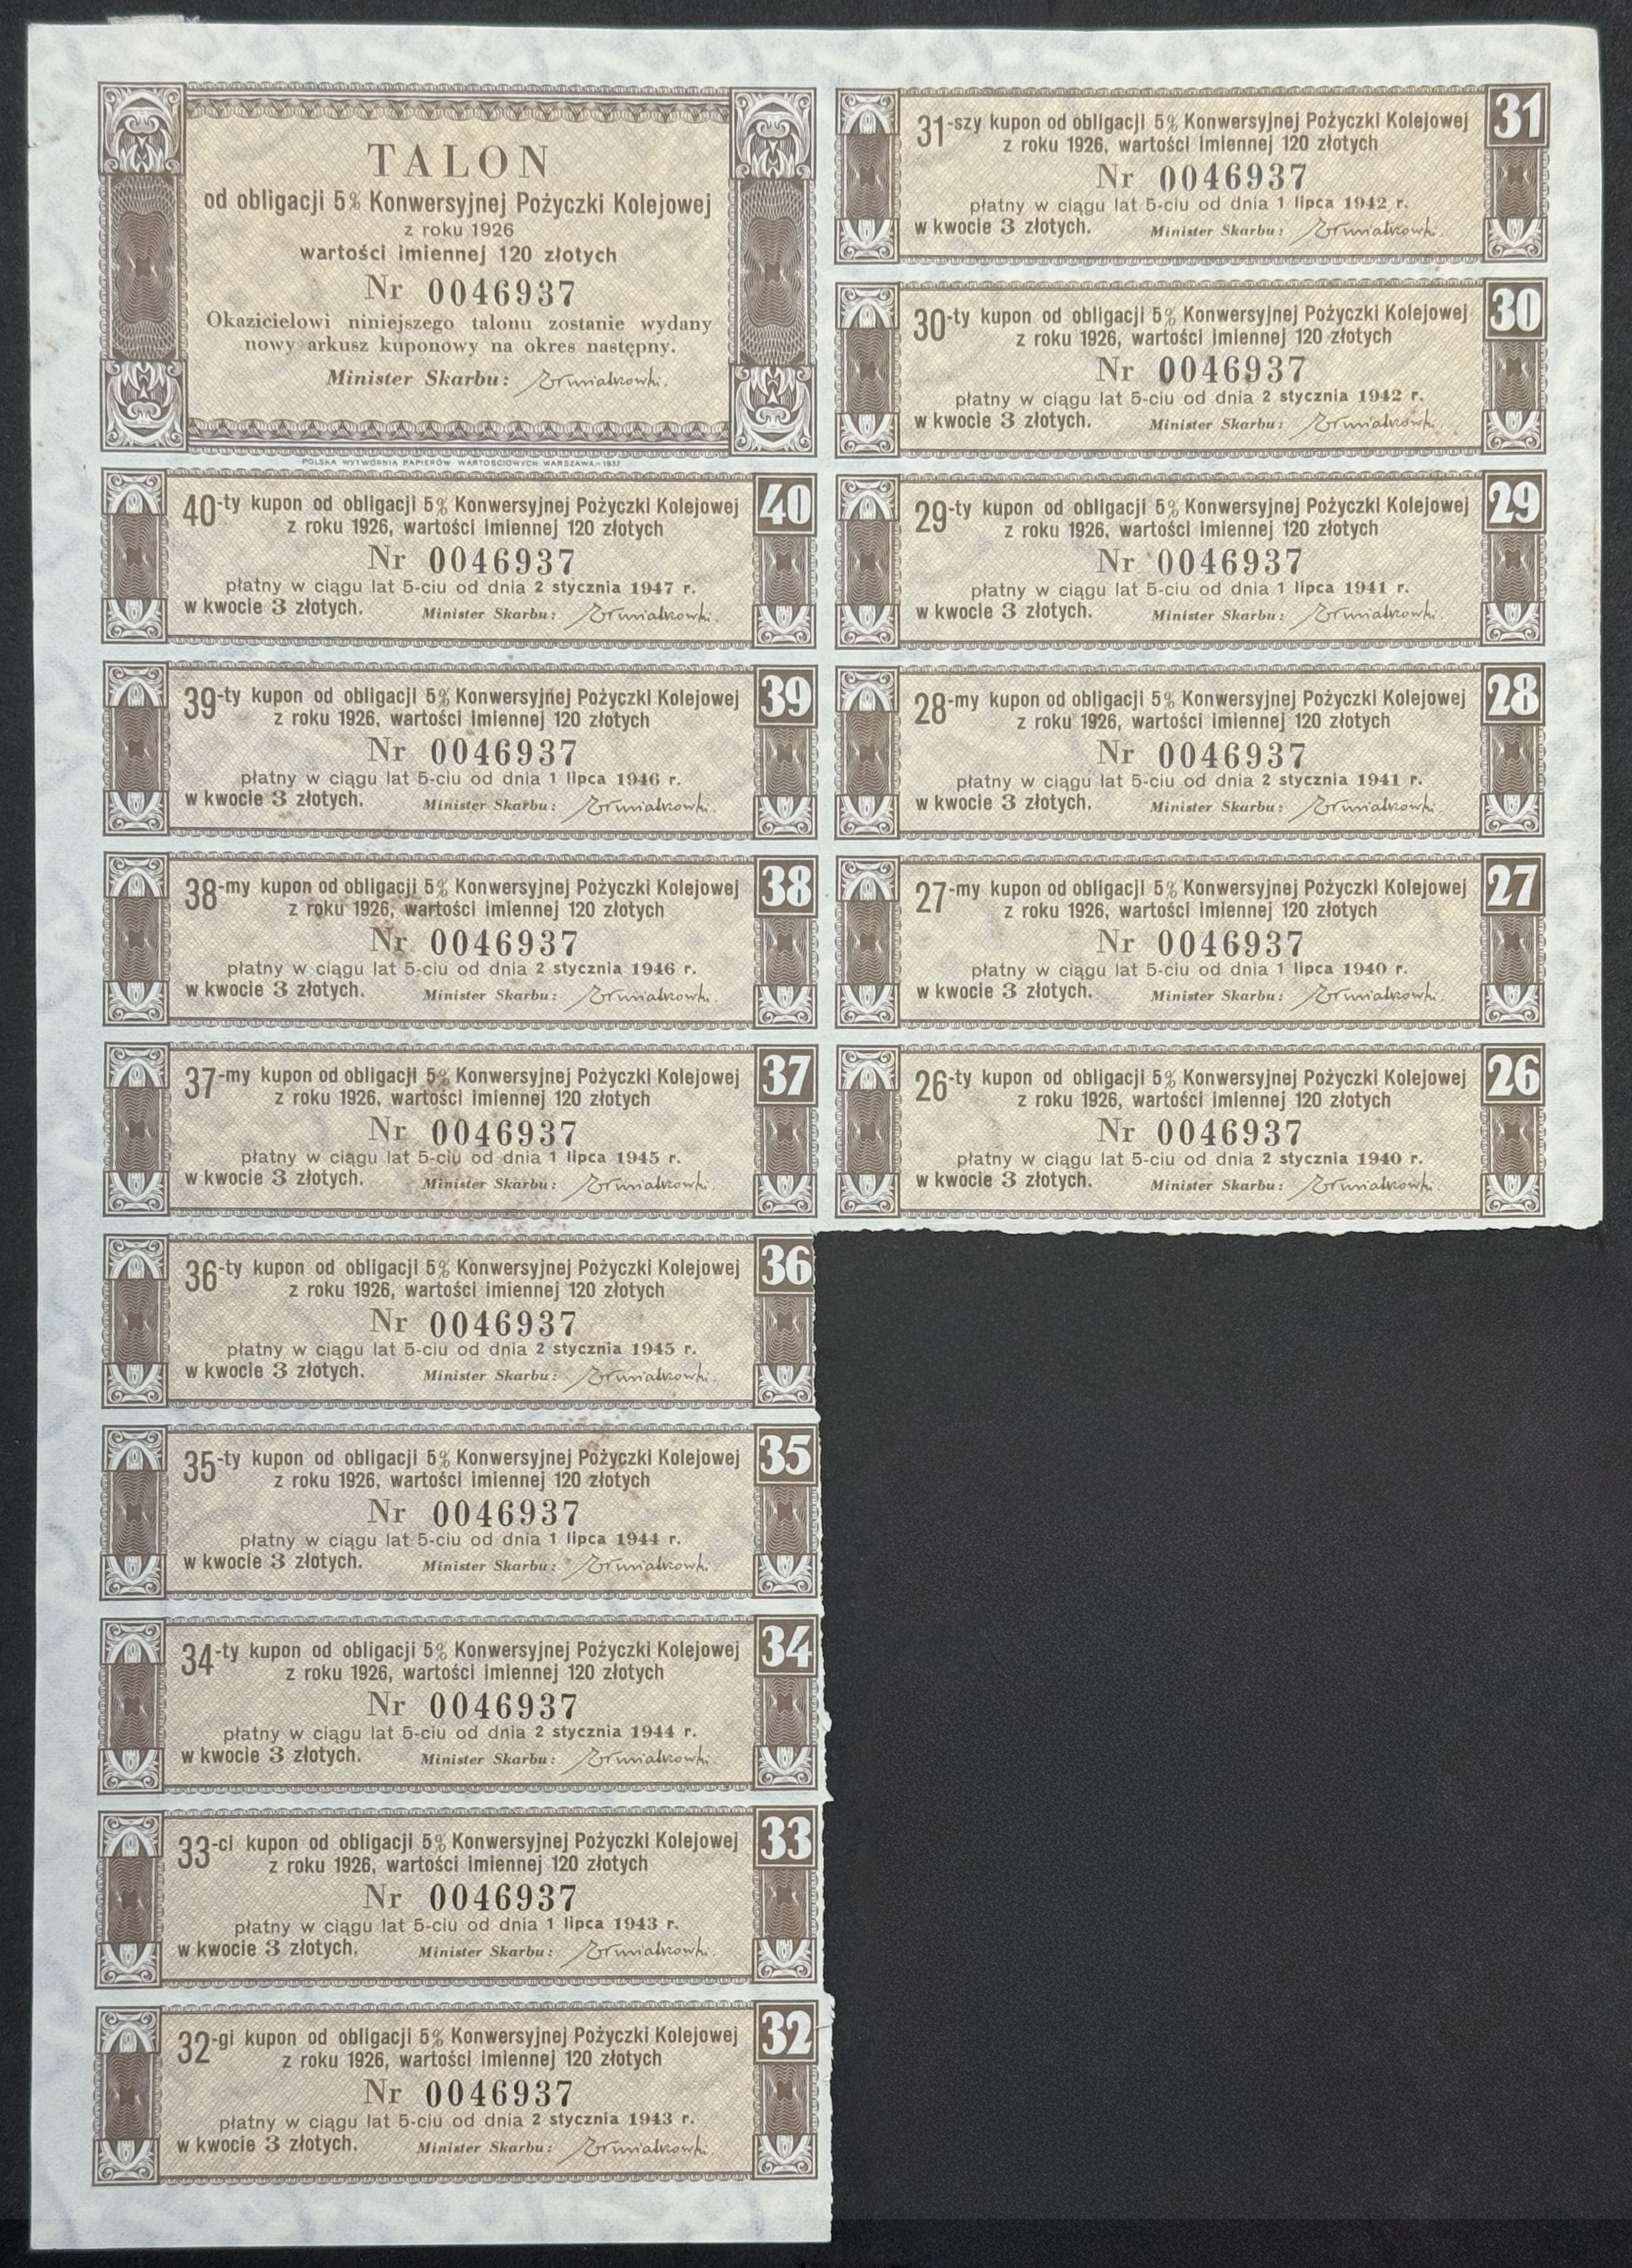 TALON
od obligacji 5% Konwersyjnej Pożyczki Kolejowej
z roku 1926
wartości imiennej 120 złotych
Nr 0046937
Okazicielowi niniejszego talonu zostanie wydany
nowy arkusz kuponowy na okres następny.
Minister Skarbu:
POLSKA WYTWÓRNIA PAPIERÓW WARTOŚCIOWYCH WARSZAWA-1937
40-ty kupon od obligacji 5% Konwersyjnej Pożyczki Kolejowej 40
z roku 1926, wartości imiennej 120 złotych
Nr 0046937
płatny w ciągu lat 5-ciu od dnia 2 stycznia 1947 r.
w kwocie 3 złotych. Minister Skarbu:
39-ty kupon od obligacji 5% Konwersyjnej Pożyczki Kolejowej 39
z roku 1926, wartości imiennej 120 złotych
Nr 0046937
płatny w ciągu lat 5-ciu od dnia 1 lipca 1946 r.
w kwocie 3 złotych. Minister Skarbu:
38-my kupon od obligacji 5% Konwersyjnej Pożyczki Kolejowej 38
z roku 1926, wartości imiennej 120 złotych
Nr 0046937
płatny w ciągu lat 5-ciu od dnia 2 stycznia 1946 r.
w kwocie 3 złotych. Minister Skarbu:
37-my kupon od obligacji 5% Konwersyjnej Pożyczki Kolejowej 37
z roku 1926, wartości imiennej 120 złotych
Nr 0046937
płatny w ciągu lat 5-ciu od dnia 1 lipca 1945 r.
w kwocie 3 złotych. Minister Skarbu:
36-ty kupon od obligacji 5% Konwersyjnej Pożyczki Kolejowej 36
z roku 1926, wartości imiennej 120 złotych
Nr 0046937
płatny w ciągu lat 5-ciu od dnia 2 stycznia 1945 r.
w kwocie 3 złotych. Minister Skarbu:
35-ty kupon od obligacji 5% Konwersyjnej Pożyczki Kolejowej 35
z roku 1926, wartości imiennej 120 złotych
Nr 0046937
płatny w ciągu lat 5-ciu od dnia 1 lipca 1944 r.
w kwocie 3 złotych. Minister Skarbu:
34-ty kupon od obligacji 5% Konwersyjnej Pożyczki Kolejowej 34
z roku 1926, wartości imiennej 120 złotych
Nr 0046937
płatny w ciągu lat 5-ciu od dnia 2 stycznia 1944 r.
w kwocie 3 złotych. Minister Skarbu:
33-ci kupon od obligacji 5% Konwersyjnej Pożyczki Kolejowej 33
z roku 1926, wartości imiennej 120 złotych
Nr 0046937
płatny w ciągu lat 5-ciu od dnia 1 lipca 1943 r.
w kwocie 3 złotych. Minister Skarbu:
32-gi kupon od obligacji 5% Konwersyjnej Pożyczki Kolejowej 32
z roku 1926, wartości imiennej 120 złotych
Nr 0046937
płatny w ciągu lat 5-ciu od dnia 2 stycznia 1943 r.
w kwocie 3 złotych. Minister Skarbu:
31-szy kupon od obligacji 5% Konwersyjnej Pożyczki Kolejowej 31
z roku 1926, wartości imiennej 120 złotych
Nr 0046937
płatny w ciągu lat 5-ciu od dnia 1 lipca 1942 r.
w kwocie 3 złotych. Minister Skarbu:
30-ty kupon od obligacji 5% Konwersyjnej Pożyczki Kolejowej 30
z roku 1926, wartości imiennej 120 złotych
Nr 0046937
płatny w ciągu lat 5-ciu od dnia 2 stycznia 1942 r.
w kwocie 3 złotych. Minister Skarbu:
29-ty kupon od obligacji 5% Konwersyjnej Pożyczki Kolejowej 29
z roku 1926, wartości imiennej 120 złotych
Nr 0046937
płatny w ciągu lat 5-ciu od dnia 1 lipca 1941 r.
w kwocie 3 złotych. Minister Skarbu:
28-my kupon od obligacji 5% Konwersyjnej Pożyczki Kolejowej 28
z roku 1926, wartości imiennej 120 złotych
Nr 0046937
płatny w ciągu lat 5-ciu od dnia 2 stycznia 1941 r.
w kwocie 3 złotych. Minister Skarbu:
27-my kupon od obligacji 5% Konwersyjnej Pożyczki Kolejowej 27
z roku 1926, wartości imiennej 120 złotych
Nr 0046937
płatny w ciągu lat 5-ciu od dnia 1 lipca 1940 r.
w kwocie 3 złotych. Minister Skarbu:
26-ty kupon od obligacji 5% Konwersyjnej Pożyczki Kolejowej 26
z roku 1926, wartości imiennej 120 złotych
Nr 0046937
płatny w ciągu lat 5-ciu od dnia 2 stycznia 1940 r.
w kwocie 3 złotych. Minister Skarbu: